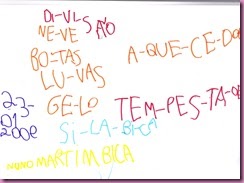 DI-VI-SÃO
NE-VE
BO-TAS
A-QUE-CE-DO
LU-VAS
GE-LO
TEM-PES-TA-
23-
01
SI-LA-BI-CA
NUNO MARTIM BICA